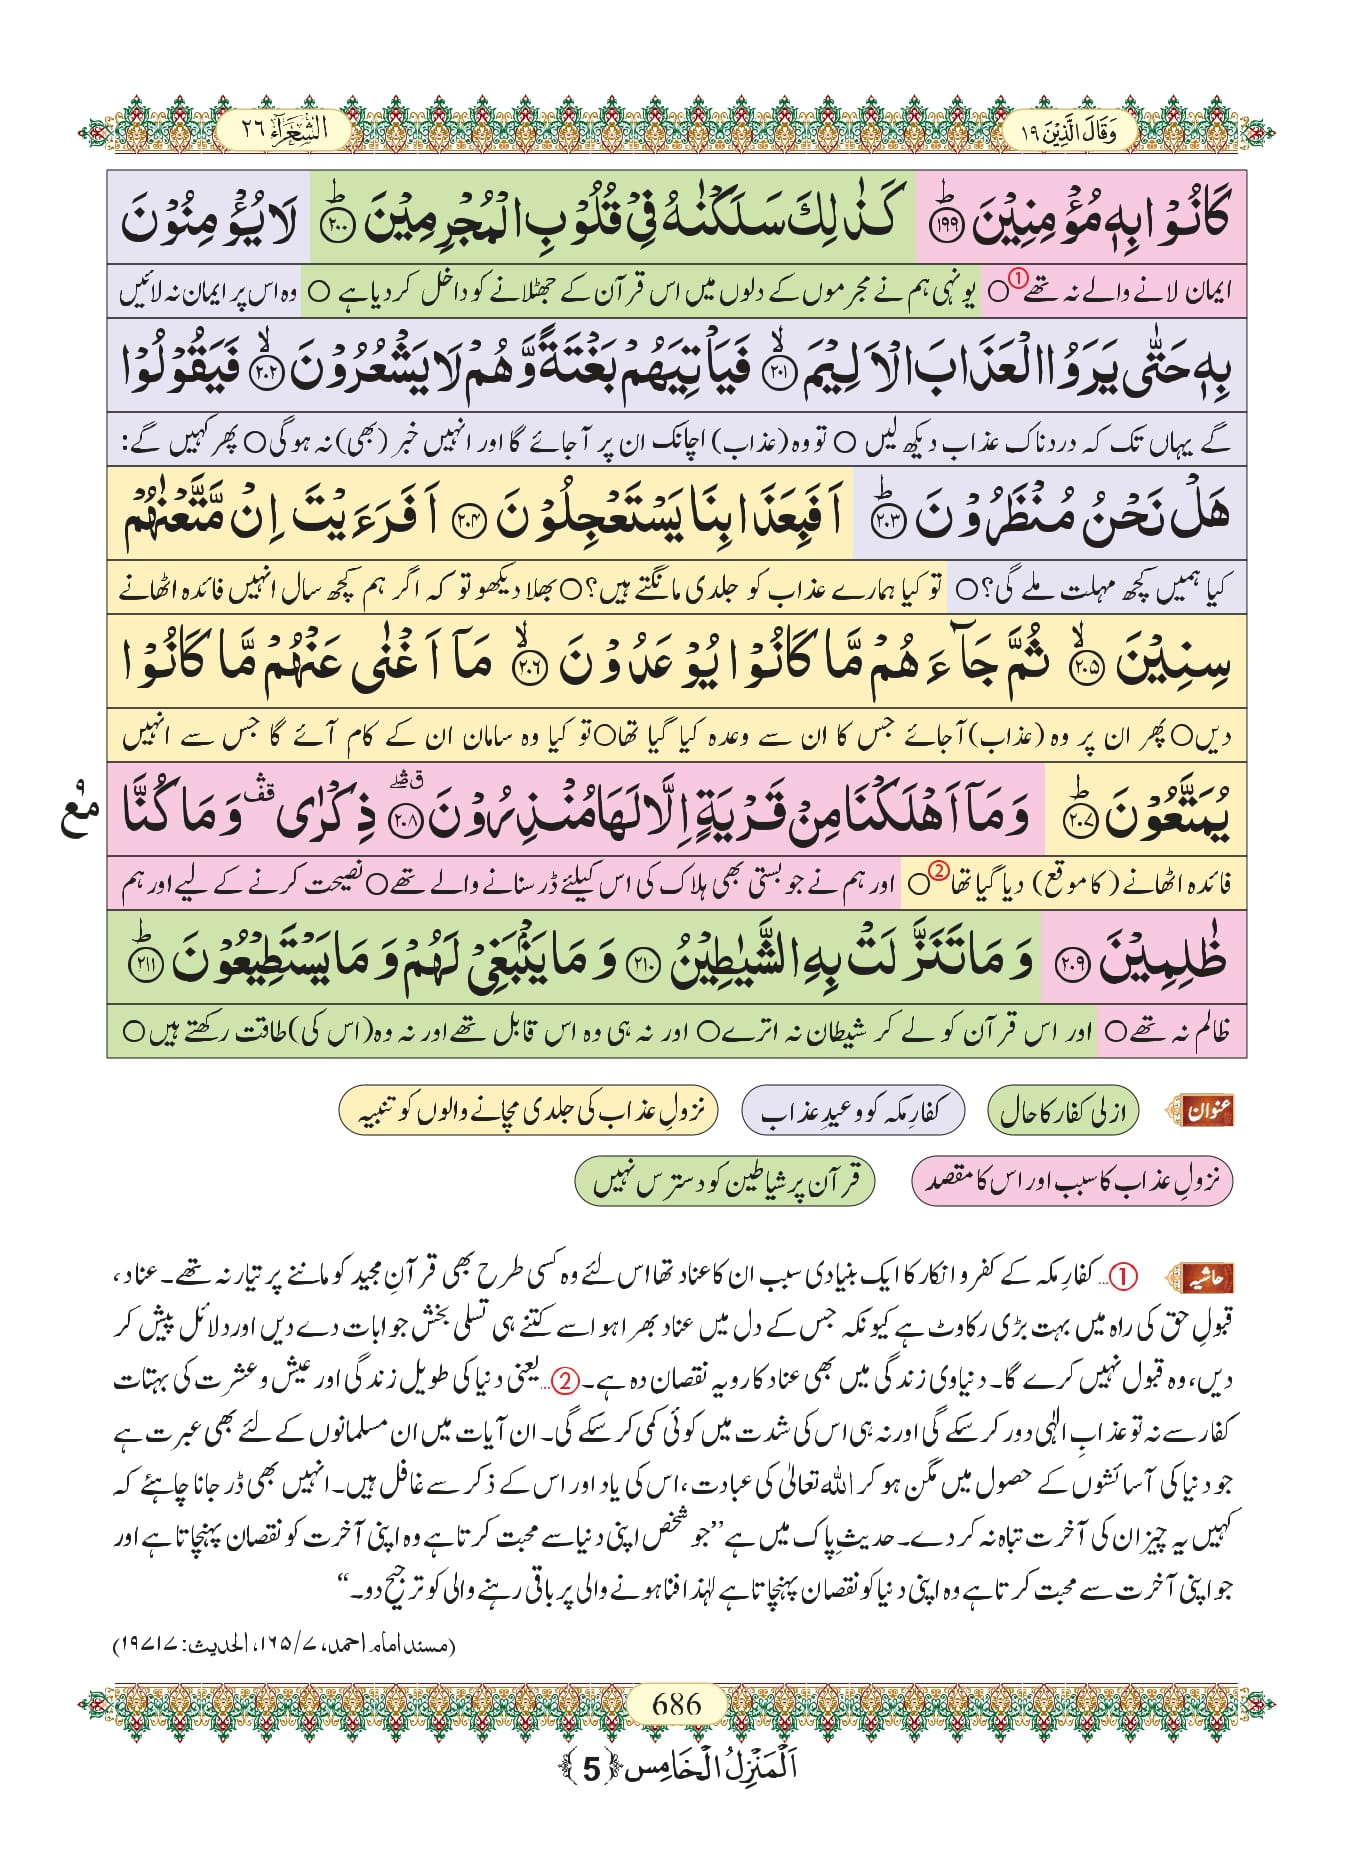 وَقَالَ الَّذِيْنَ ١٩
الشُّعَرَآء ٢٦
كَانُوْا بِهٖ مُؤْمِنِيْنَ ﴿١٩٩﴾ؕ كَذٰلِكَ سَلَكْنٰهُ فِيْ قُلُوْبِ الْمُجْرِمِيْنَ ﴿٢٠٠﴾ؕ لَا يُؤْمِنُوْنَ
ایمان لانے والے نہ تھے ①○ یونہی ہم نے مجرموں کے دلوں میں اس قرآن کے جھٹلانے کو داخل کردیا ہے ○ وہ اس پر ایمان نہ لائیں
بِهٖ حَتّٰى يَرَوُا الْعَذَابَ الْاَلِيْمَ ﴿٢٠١﴾ۙ فَيَاْتِيَهُمْ بَغْتَةً وَّهُمْ لَا يَشْعُرُوْنَ ﴿٢٠٢﴾ۙ فَيَقُوْلُوْا
گے یہاں تک کہ دردناک عذاب دیکھ لیں ○ تو وہ (عذاب) اچانک ان پر آجائے گا اور انہیں خبر (بھی) نہ ہوگی ○ پھر کہیں گے:
هَلْ نَحْنُ مُنْظَرُوْنَ ﴿٢٠٣﴾ؕ اَفَبِعَذَابِنَا يَسْتَعْجِلُوْنَ ﴿٢٠٤﴾ اَفَرَءَيْتَ اِنْ مَّتَّعْنٰهُمْ
کیا ہمیں کچھ مہلت ملے گی؟ ○ تو کیا ہمارے عذاب کو جلدی مانگتے ہیں؟ ○ بھلا دیکھو تو کہ اگر ہم کچھ سال انہیں فائدہ اٹھانے
سِنِيْنَ ﴿٢٠٥﴾ۙ ثُمَّ جَآءَهُمْ مَّا كَانُوْا يُوْعَدُوْنَ ﴿٢٠٦﴾ۙ مَاۤ اَغْنٰى عَنْهُمْ مَّا كَانُوْا
دیں ○ پھر ان پر وہ (عذاب) آجائے جس کا ان سے وعدہ کیا گیا تھا ○ تو کیا وہ سامان ان کے کام آئے گا جس سے انہیں
يُمَتَّعُوْنَ ﴿٢٠٧﴾ؕ وَمَاۤ اَهْلَكْنَا مِنْ قَرْيَةٍ اِلَّا لَهَا مُنْذِرُوْنَ ﴿٢٠٨﴾ ذِكْرٰى ۛ قف وَمَا كُنَّا
مع ٩
فائدہ اٹھانے (کا موقع) دیا گیا تھا ②○ اور ہم نے جو بستی بھی ہلاک کی اس کیلئے ڈر سنانے والے تھے ○ نصیحت کرنے کے لیے اور ہم
ظٰلِمِيْنَ ﴿٢٠٩﴾ وَمَا تَنَزَّلَتْ بِهِ الشَّيٰطِيْنُ ﴿٢١٠﴾ وَمَا يَنْۢبَغِيْ لَهُمْ وَمَا يَسْتَطِيْعُوْنَ ﴿٢١١﴾ؕ
ظالم نہ تھے ○ اور اس قرآن کو لے کر شیطان نہ اترے ○ اور نہ ہی وہ اس قابل تھے اور نہ وہ (اس کی) طاقت رکھتے ہیں ○
عنوان ازلی کفار کا حال کفارِ مکہ کو وعیدِ عذاب نزولِ عذاب کی جلدی مچانے والوں کو تنبیہ
نزولِ عذاب کا سبب اور اس کا مقصد قرآن پر شیاطین کو دسترس نہیں
حاشیہ ①... کفارِ مکہ کے کفر و انکار کا ایک بنیادی سبب ان کا عناد تھا اس لئے وہ کسی طرح بھی قرآنِ مجید کو ماننے پر تیار نہ تھے۔ عناد،
قبولِ حق کی راہ میں بہت بڑی رکاوٹ ہے کیونکہ جس کے دل میں عناد بھرا ہو اسے کتنے ہی تسلی بخش جوابات دے دیں اور دلائل پیش کر
دیں، وہ قبول نہیں کرے گا۔ دنیاوی زندگی میں بھی عناد کا رویہ نقصان دہ ہے۔ ②... یعنی دنیا کی طویل زندگی اور عیش و عشرت کی بہتات
کفار سے نہ تو عذابِ الٰہی دور کر سکے گی اور نہ ہی اس کی شدت میں کوئی کمی کر سکے گی۔ ان آیات میں ان مسلمانوں کے لئے بھی عبرت ہے
جو دنیا کی آسائشوں کے حصول میں مگن ہو کر اللہ تعالیٰ کی عبادت، اس کی یاد اور اس کے ذکر سے غافل ہیں۔ انہیں بھی ڈر جانا چاہئے کہ
کہیں یہ چیز ان کی آخرت تباہ نہ کر دے۔ حدیثِ پاک میں ہے ’’جو شخص اپنی دنیا سے محبت کرتا ہے وہ اپنی آخرت کو نقصان پہنچاتا ہے اور
جو اپنی آخرت سے محبت کرتا ہے وہ اپنی دنیا کو نقصان پہنچاتا ہے لہٰذا فنا ہونے والی پر باقی رہنے والی کو ترجیح دو۔“
(مسند امام احمد، ٧/١٦٥، الحدیث: ١٩٧١٧)
686
اَلْمَنْزِلُ الْخَامِس ﴿5﴾